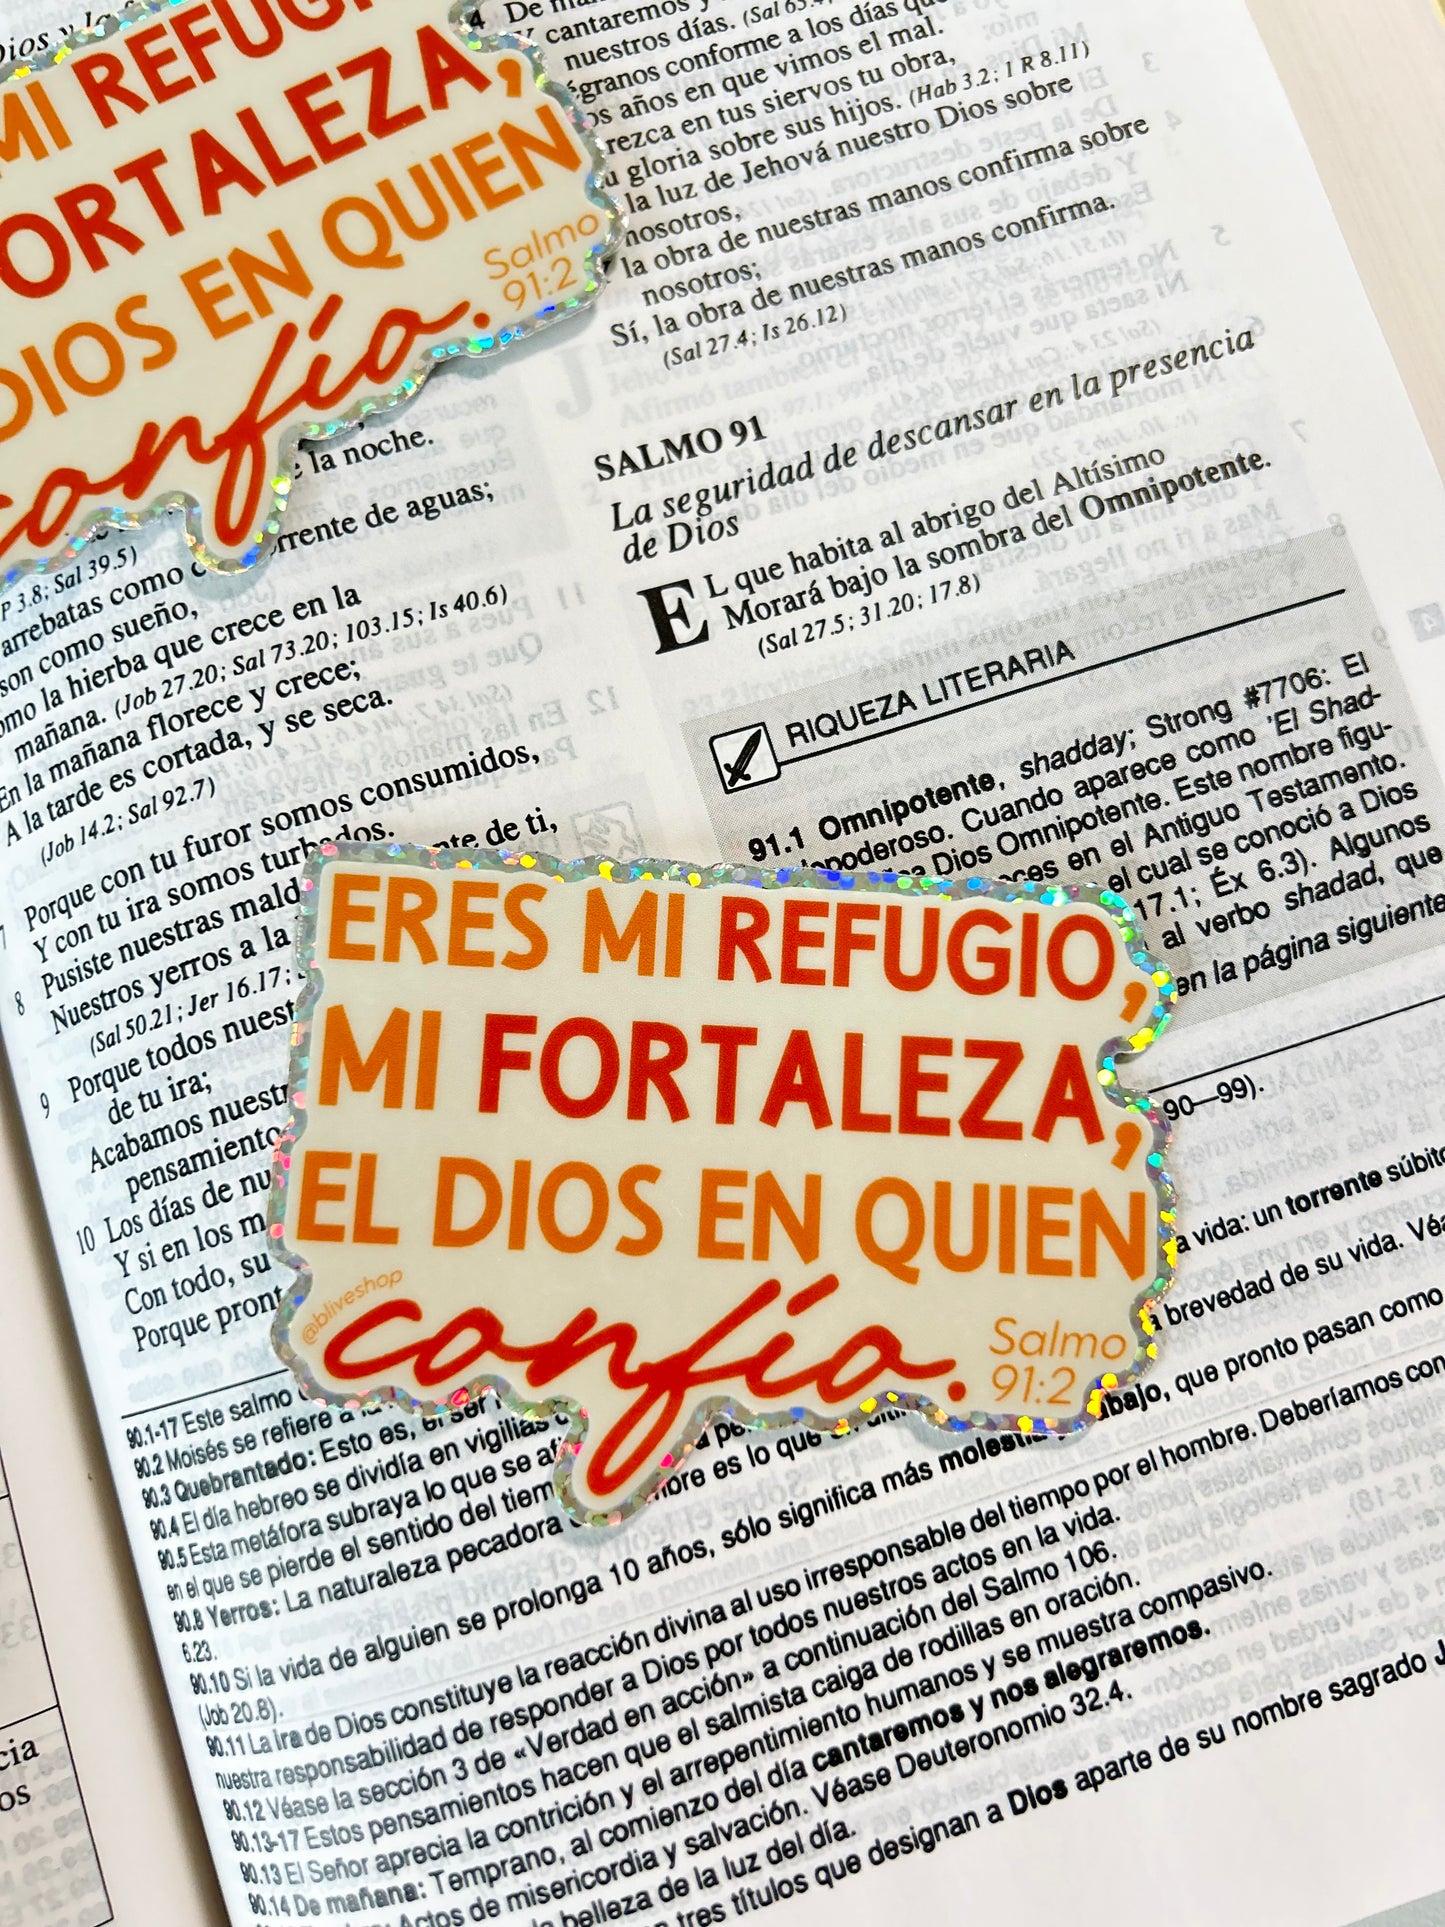 MI REFUGIO
FORTALEZA,
DIOS EN QUIEN
confío.
Salmo
91:2
e la noche.
rrente de aguas;
P 3.8; Sal 39.5)
arrebatas como
son como sueño,
omo la hierba que crece en la
mañana. (Job 27.20; Sal 73.20; 103.15; Is 40.6)
En la mañana florece y crece;
A la tarde es cortada, y se seca.
(Job 14.2; Sal 92.7)
7 Porque con tu furor somos consumidos,
Y con tu ira somos turbados.
8 Pusiste nuestras mald nte de ti,
Nuestros yerros a la
(Sal 50.21; Jer 16.17;
9 Porque todos nuest
de tu ira;
Acabamos nuestr
pensamiento
10 Los días de nu
Y si en los m
Con todo, su
Porque pront
4 De
Y cantaremos y
nuestros días. (Sal
égranos conforme a los días qu
os años en que vimos el mal.
rezca en tus siervos tu obra,
u gloria sobre sus hijos. (Hab 3.2; 1 R 8.11)
la luz de Jehová nuestro Dios sobre
nosotros,
la obra de nuestras manos confirma sobre
nosotros;
Sí, la obra de nuestras manos confirma.
(Sal 27.4; Is 26.12)
SALMO 91
La seguridad de descansar en la presencia
de Dios
EL que habita al abrigo del Altísimo
Morará bajo la sombra del Omnipotente.
(Sal 27.5; 31.20; 17.8)
RIQUEZA LITERARIA
91.1 Omnipotente, shadday; Strong #7706: El
opoderoso. Cuando aparece como 'El Shad-
Dios Omnipotente. Este nombre figu-
ces en el Antiguo Testamento.
el cual se conoció a Dios
17.1; Éx 6.3). Algunos
al verbo shadad, que
en la página siguiente
ERES MI REFUGIO,
MI FORTALEZA,
EL DIOS EN QUIEN
confío.
@bliveshop
Salmo
91:2
90—99).
a vida: un torrente súbito
brevedad de su vida. Véa
abajo, que pronto pasan como
90.1-17 Este salmo
90.2 Moisés se refiere a la
90.3 Quebrantado: Esto es, el ser
90.4 El día hebreo se dividía en vigilias
90.5 Esta metáfora subraya lo que se
en el que se pierde el sentido del tiem
90.8 Yerros: La naturaleza pecadora bre es lo que significa más molestia
6.23.
90.10 Si la vida de alguien se prolonga 10 años, sólo significa más
(Job 20.8).
90.11 La ira de Dios constituye la reacción divina al uso irresponsable del tiempo por el hombre. Deberíamos con
nuestra responsabilidad de responder a Dios por todos nuestros actos en la vida.
90.12 Véase la sección 3 de «Verdad en acción» a continuación del Salmo 106.
90.13-17 Estos pensamientos hacen que el salmista caiga de rodillas en oración.
90.13 El Señor aprecia la contrición y el arrepentimiento humanos y se muestra compasivo.
90.14 De mañana: Temprano, al comienzo del día cantaremos y nos alegraremos.
Actos de misericordia y salvación. Véase Deuteronomio 32.4.
belleza de la luz del día.
tres títulos que designan a Dios aparte de su nombre sagrado J
cia
os